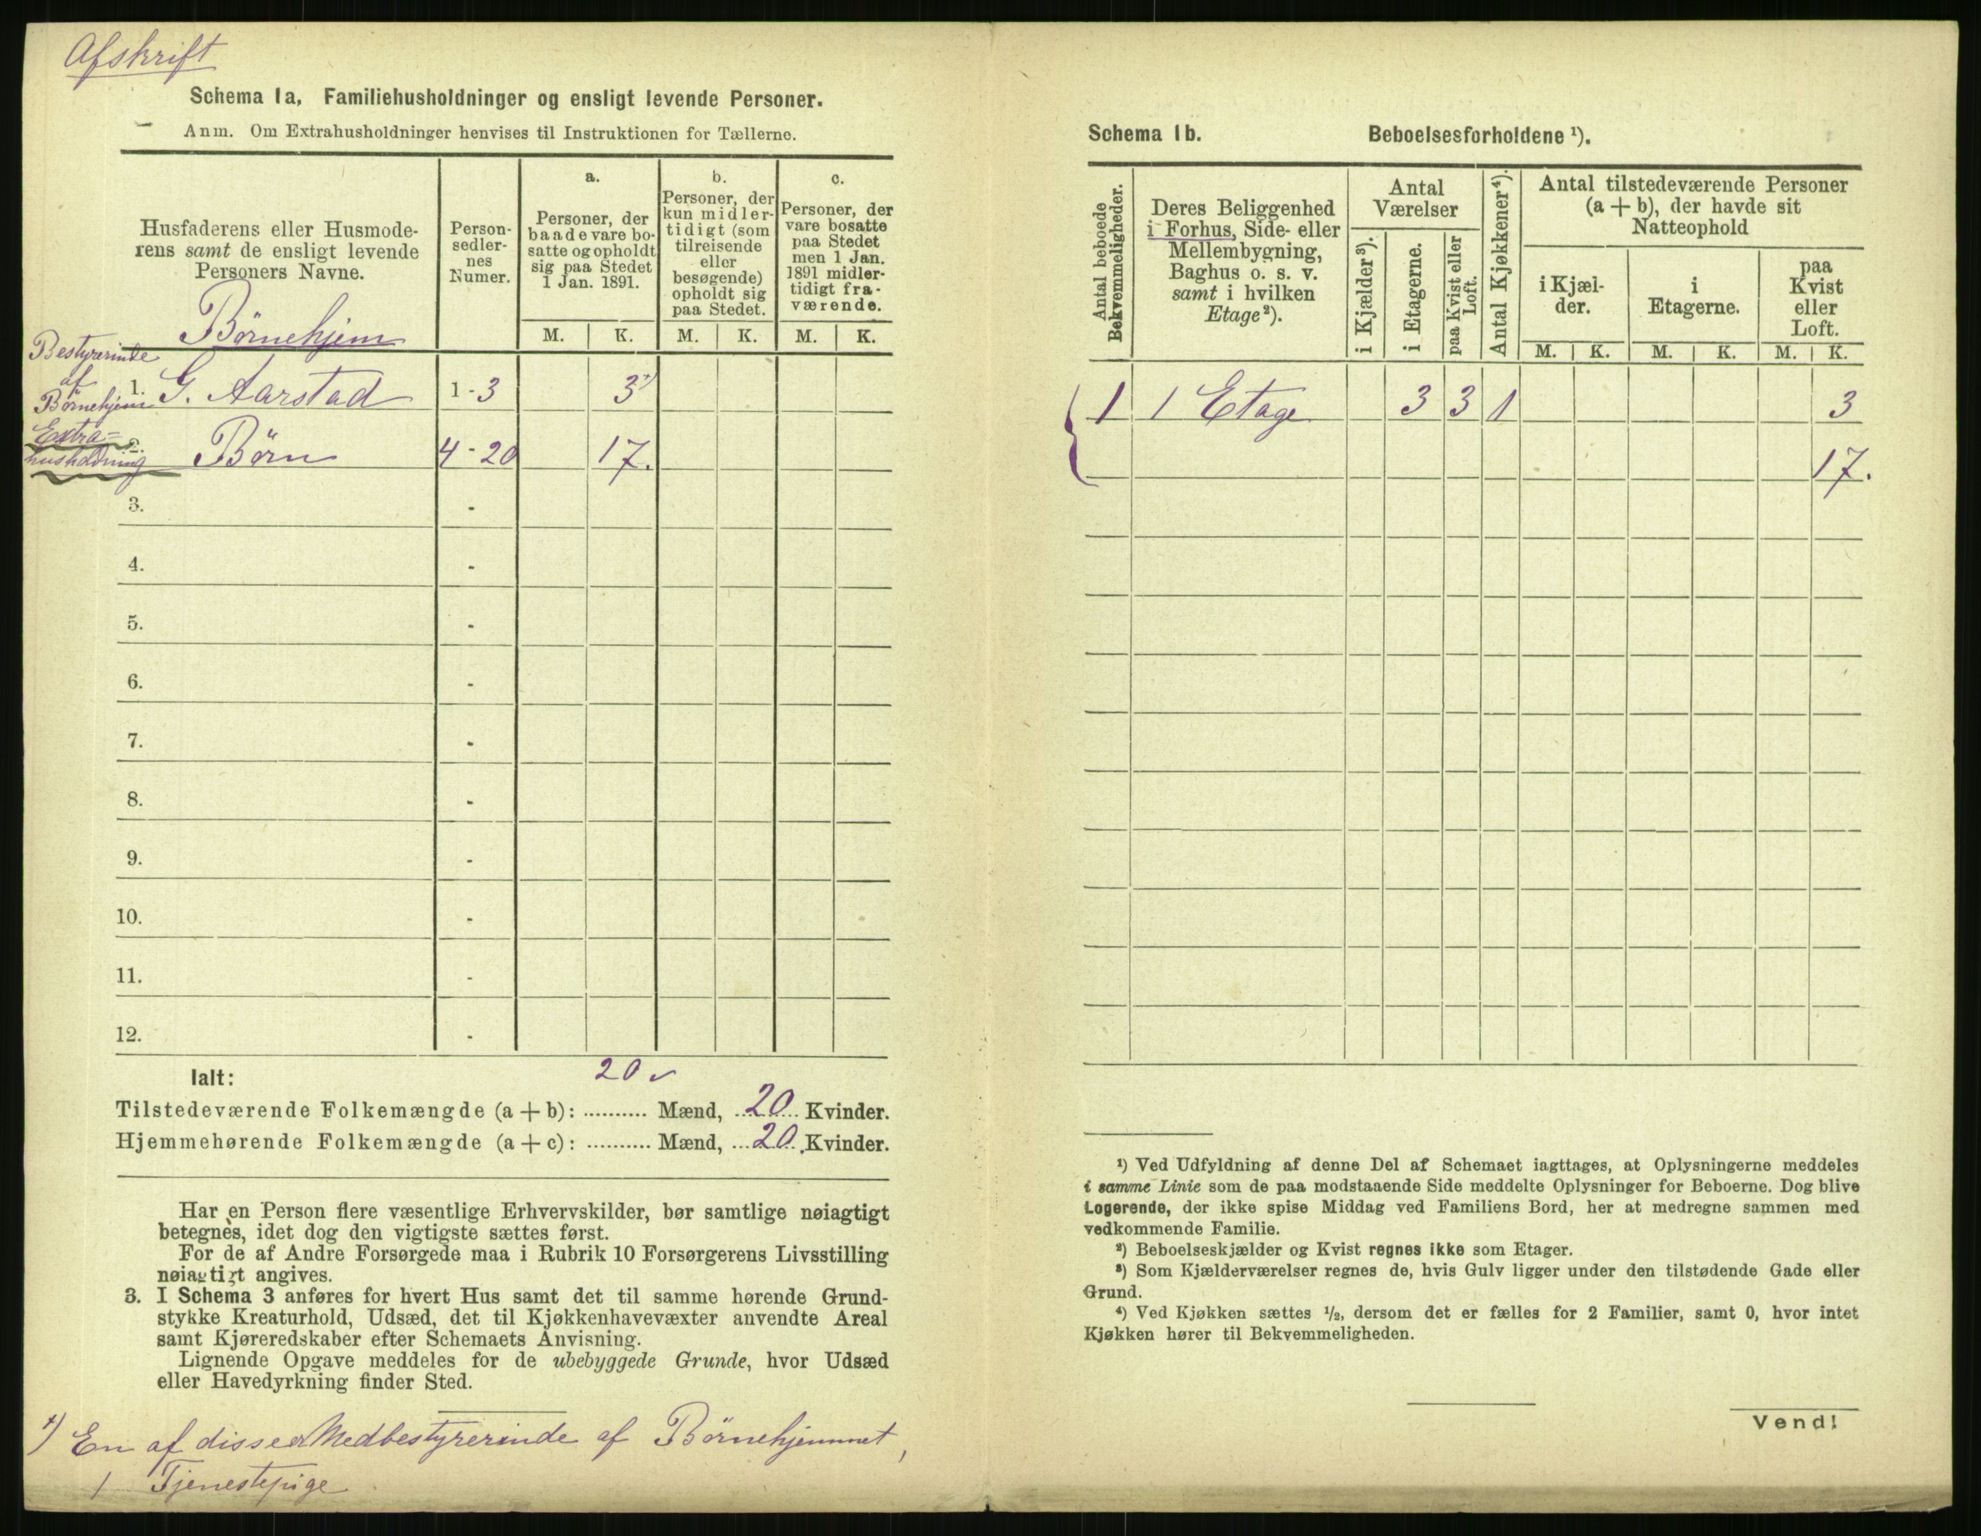 Afskrift
Schema 1a, Familiehusholdninger og ensligt levende Personer.
Anm. Om Extrahusholdninger henvises til Instruktionen for Tællerne.
Husfaderens eller Husmode-
rens samt de ensligt levende
Personers Navne.
Person-
sedler-
nes
Numer.
a.
Personer, der
baade vare bo-
satte og opholdt
sig paa Stedet
1 Jan. 1891.
b.
Personer, der
kun midler-
tidigt (som
tilreisende
eller
besøgende)
opholdt sig
paa Stedet.
c.
Personer, der
vare bosatte
paa Stedet
men 1 Jan.
1891 midler-
tidigt fra-
værende.
M. K. M. K. M. K.
Børnehjem
Bestyrerinde
af
Børnehjem
1. G. Aarstad 1-3 3 +)
Extra=
husholdning
2. Børn 4-20 17.
3. -
4. -
5. -
6. -
7. -
8. -
9. -
10. -
11. -
12. -
Ialt: 20 ✓
Tilstedeværende Folkemængde (a + b): .......... Mænd, ...20... Kvinder.
Hjemmehørende Folkemængde (a + c): .......... Mænd, ...20... Kvinder.
Har en Person flere væsentlige Erhvervskilder, bør samtlige nøiagtigt
betegnes, idet dog den vigtigste sættes først.
For de af Andre Forsørgede maa i Rubrik 10 Forsørgerens Livsstilling
nøiagtigt angives.
3. I Schema 3 anføres for hvert Hus samt det til samme hørende Grund-
stykke Kreaturhold, Udsæd, det til Kjøkkenhavevæxter anvendte Areal
samt Kjøreredskaber efter Schemaets Anvisning.
Lignende Opgave meddeles for de ubebyggede Grunde, hvor Udsæd
eller Havedyrkning finder Sted.
+) En af disse er Medbestyrerinde af Børnehjemmet,
1 Tjenestepige
Schema 1b. Beboelsesforholdene ¹).
Antal beboede
Bekvemmeligheder.
Deres Beliggenhed
i Forhus, Side- eller
Mellembygning,
Baghus o. s. v.
samt i hvilken
Etage²).
Antal
Værelser
i Kjælder³).
i Etagerne.
paa Kvist eller
Loft.
Antal Kjøkkener⁴).
Antal tilstedeværende Personer
(a + b), der havde sit
Natteophold
i Kjæl-
der.
i
Etagerne.
paa
Kvist
eller
Loft.
M. K. M. K. M. K.
1 1 Etage 3 3 1 3
17.
¹) Ved Udfyldning af denne Del af Schemaet iagttages, at Oplysningerne meddeles
i samme Linie som de paa modstaaende Side meddelte Oplysninger for Beboerne. Dog blive
Logerende, der ikke spise Middag ved Familiens Bord, her at medregne sammen med
vedkommende Familie.
²) Beboelseskjælder og Kvist regnes ikke som Etager.
³) Som Kjælderværelser regnes de, hvis Gulv ligger under den tilstødende Gade eller
Grund.
⁴) Ved Kjøkken sættes ½, dersom det er fælles for 2 Familier, samt 0, hvor intet
Kjøkken hører til Bekvemmeligheden.
Vend!